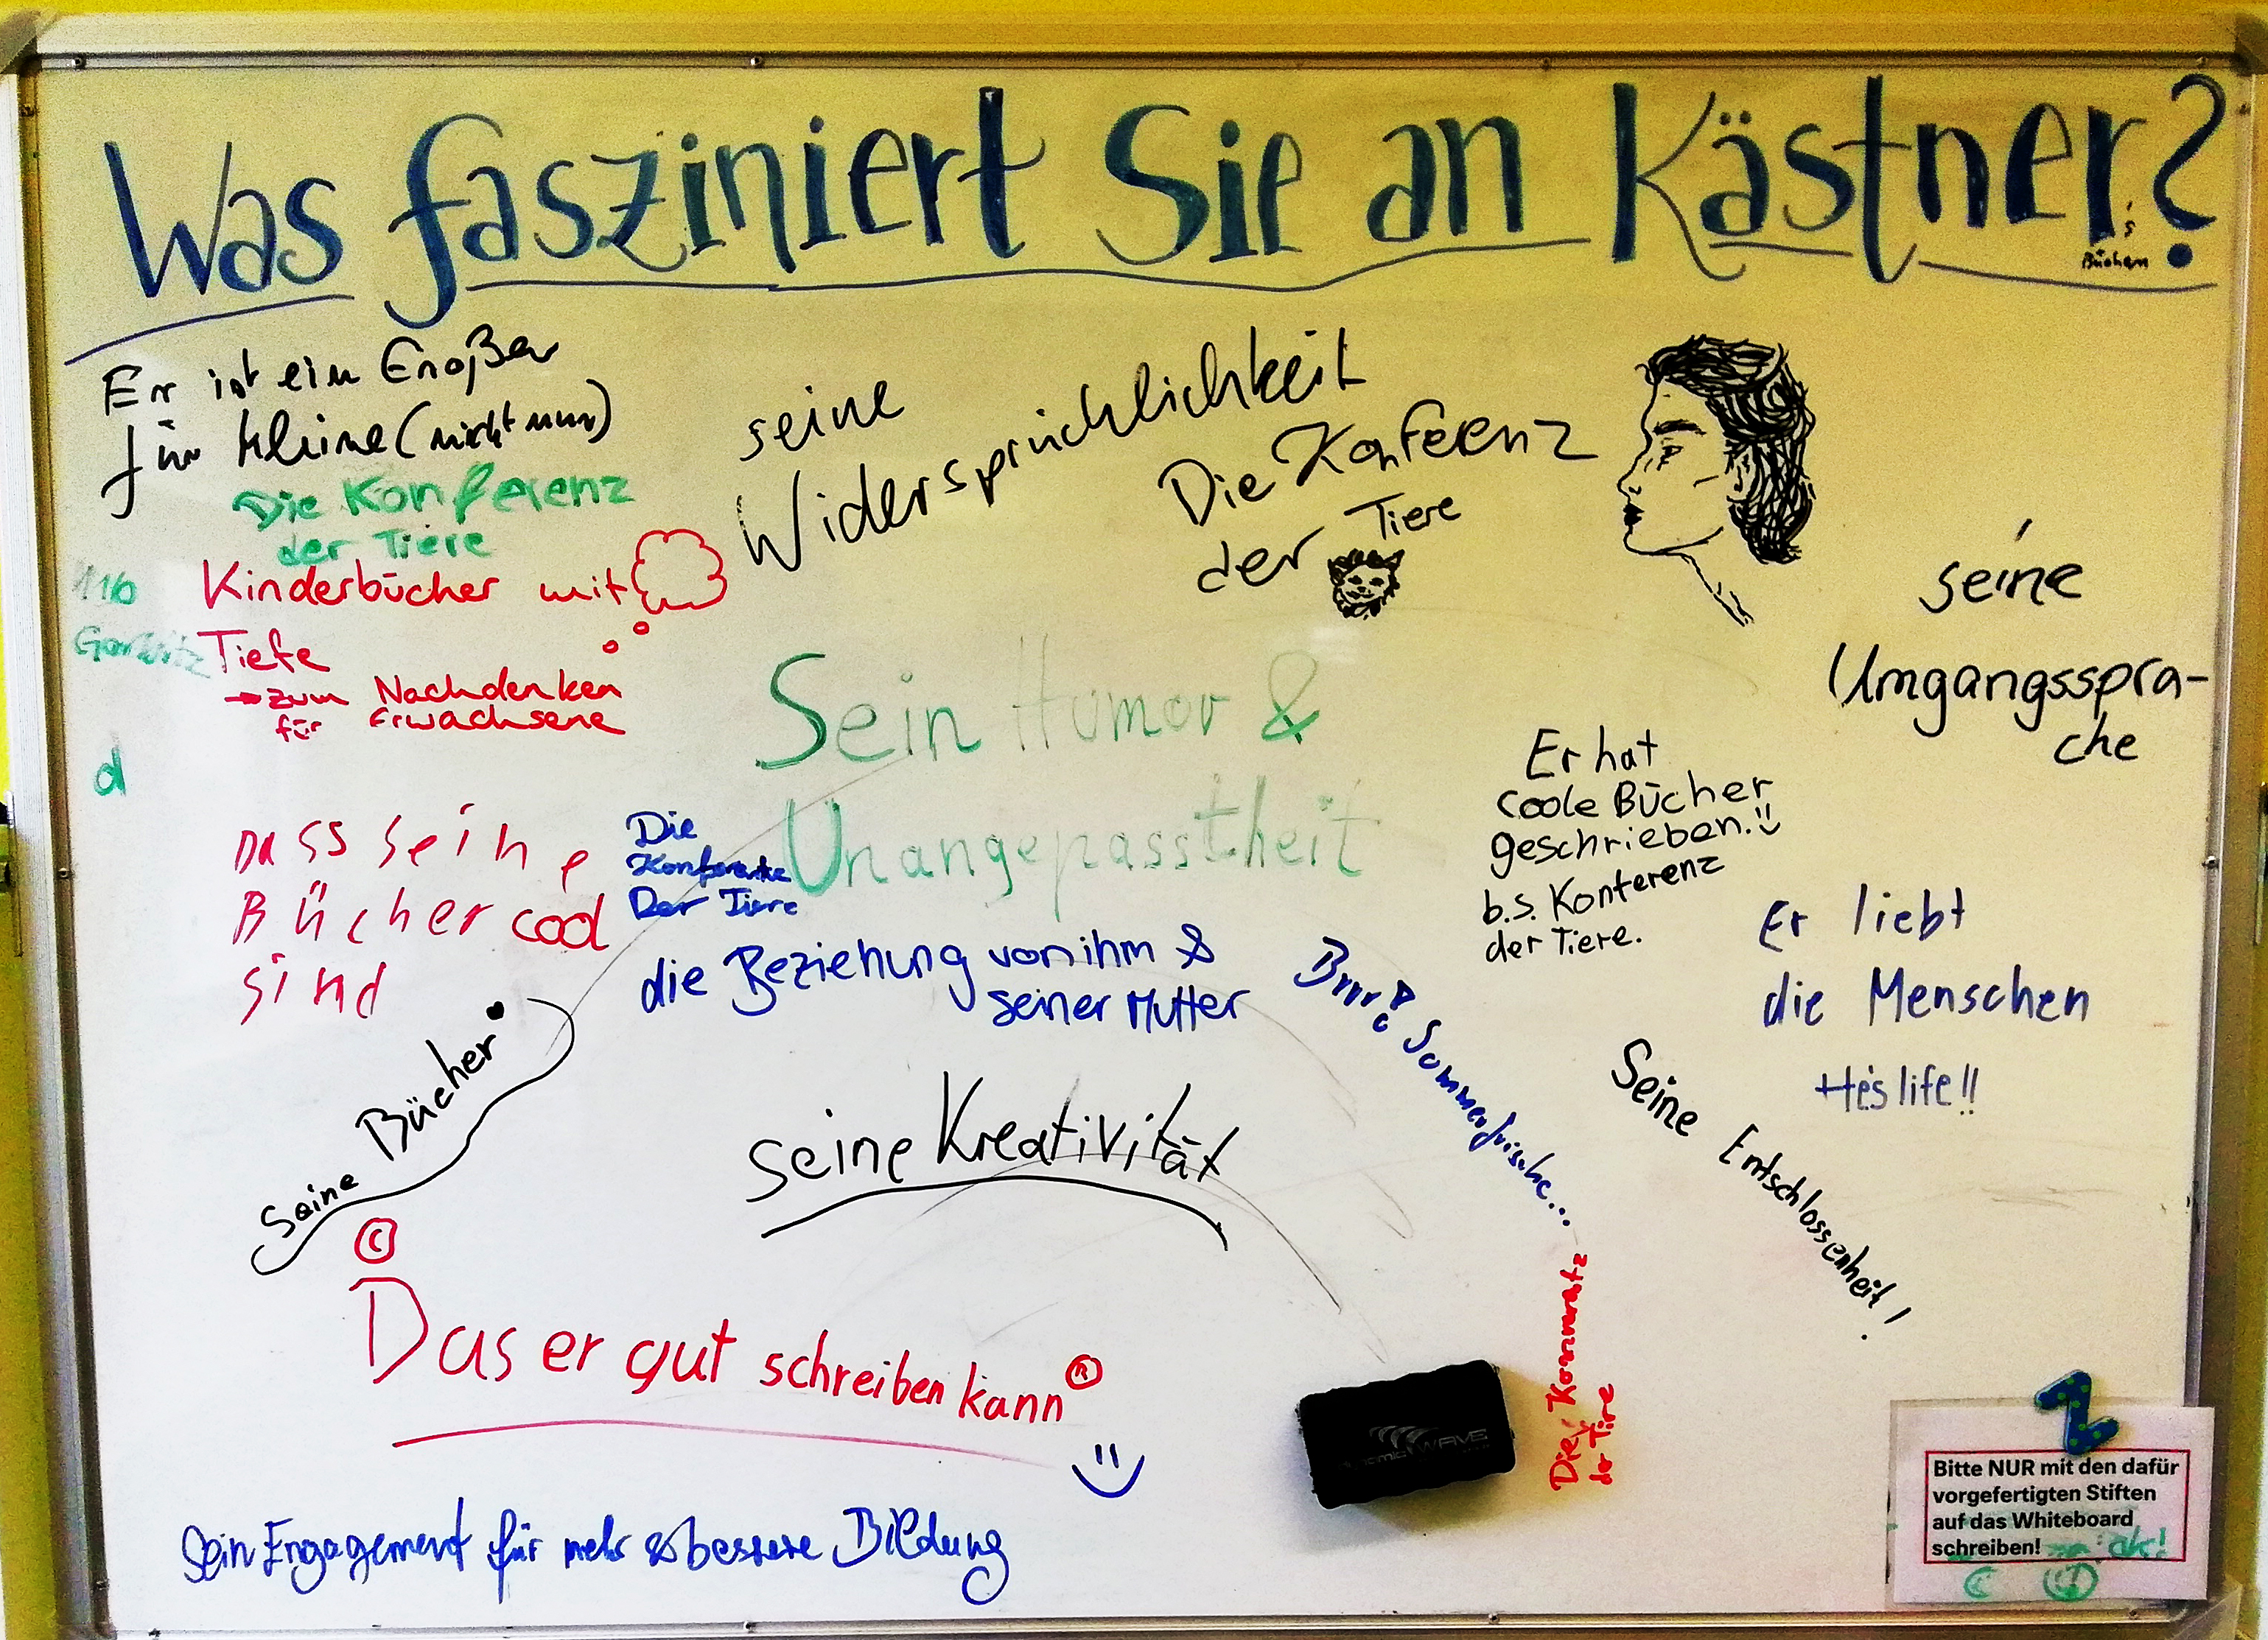 Was fasziniert Sie an Kästner?
's
Büchern
Er ist ein Großer
für kleine (nicht nur)
Die Konferenz
der Tiere
Kinderbücher mit
Tiefe
→ zum Nachdenken
für Erwachsene
11b
d
seine
Widersprüchlichkeit
Die Konferenz
der Tiere
seine
Umgangsspra-
che
Sein Humor &
Unangepasstheit
Er hat
coole Bücher
geschrieben.
b.s. Konferenz
der Tiere.
Dass seine
Bücher cool
sind
Die
Der Tiere
die Beziehung von ihm &
seiner Mutter
Brrr! Sommerfrische...
Er liebt
die Menschen
He's life!!
Seine Entschlossenheit!
Seine Bücher
seine Kreativität
©
Das er gut schreiben kann®
Die
der Tire
Sein Engagement für mehr & bessere Bildung
dynamic WAVE
Bitte NUR mit den dafür
vorgefertigten Stiften
auf das Whiteboard
schreiben!
ok!